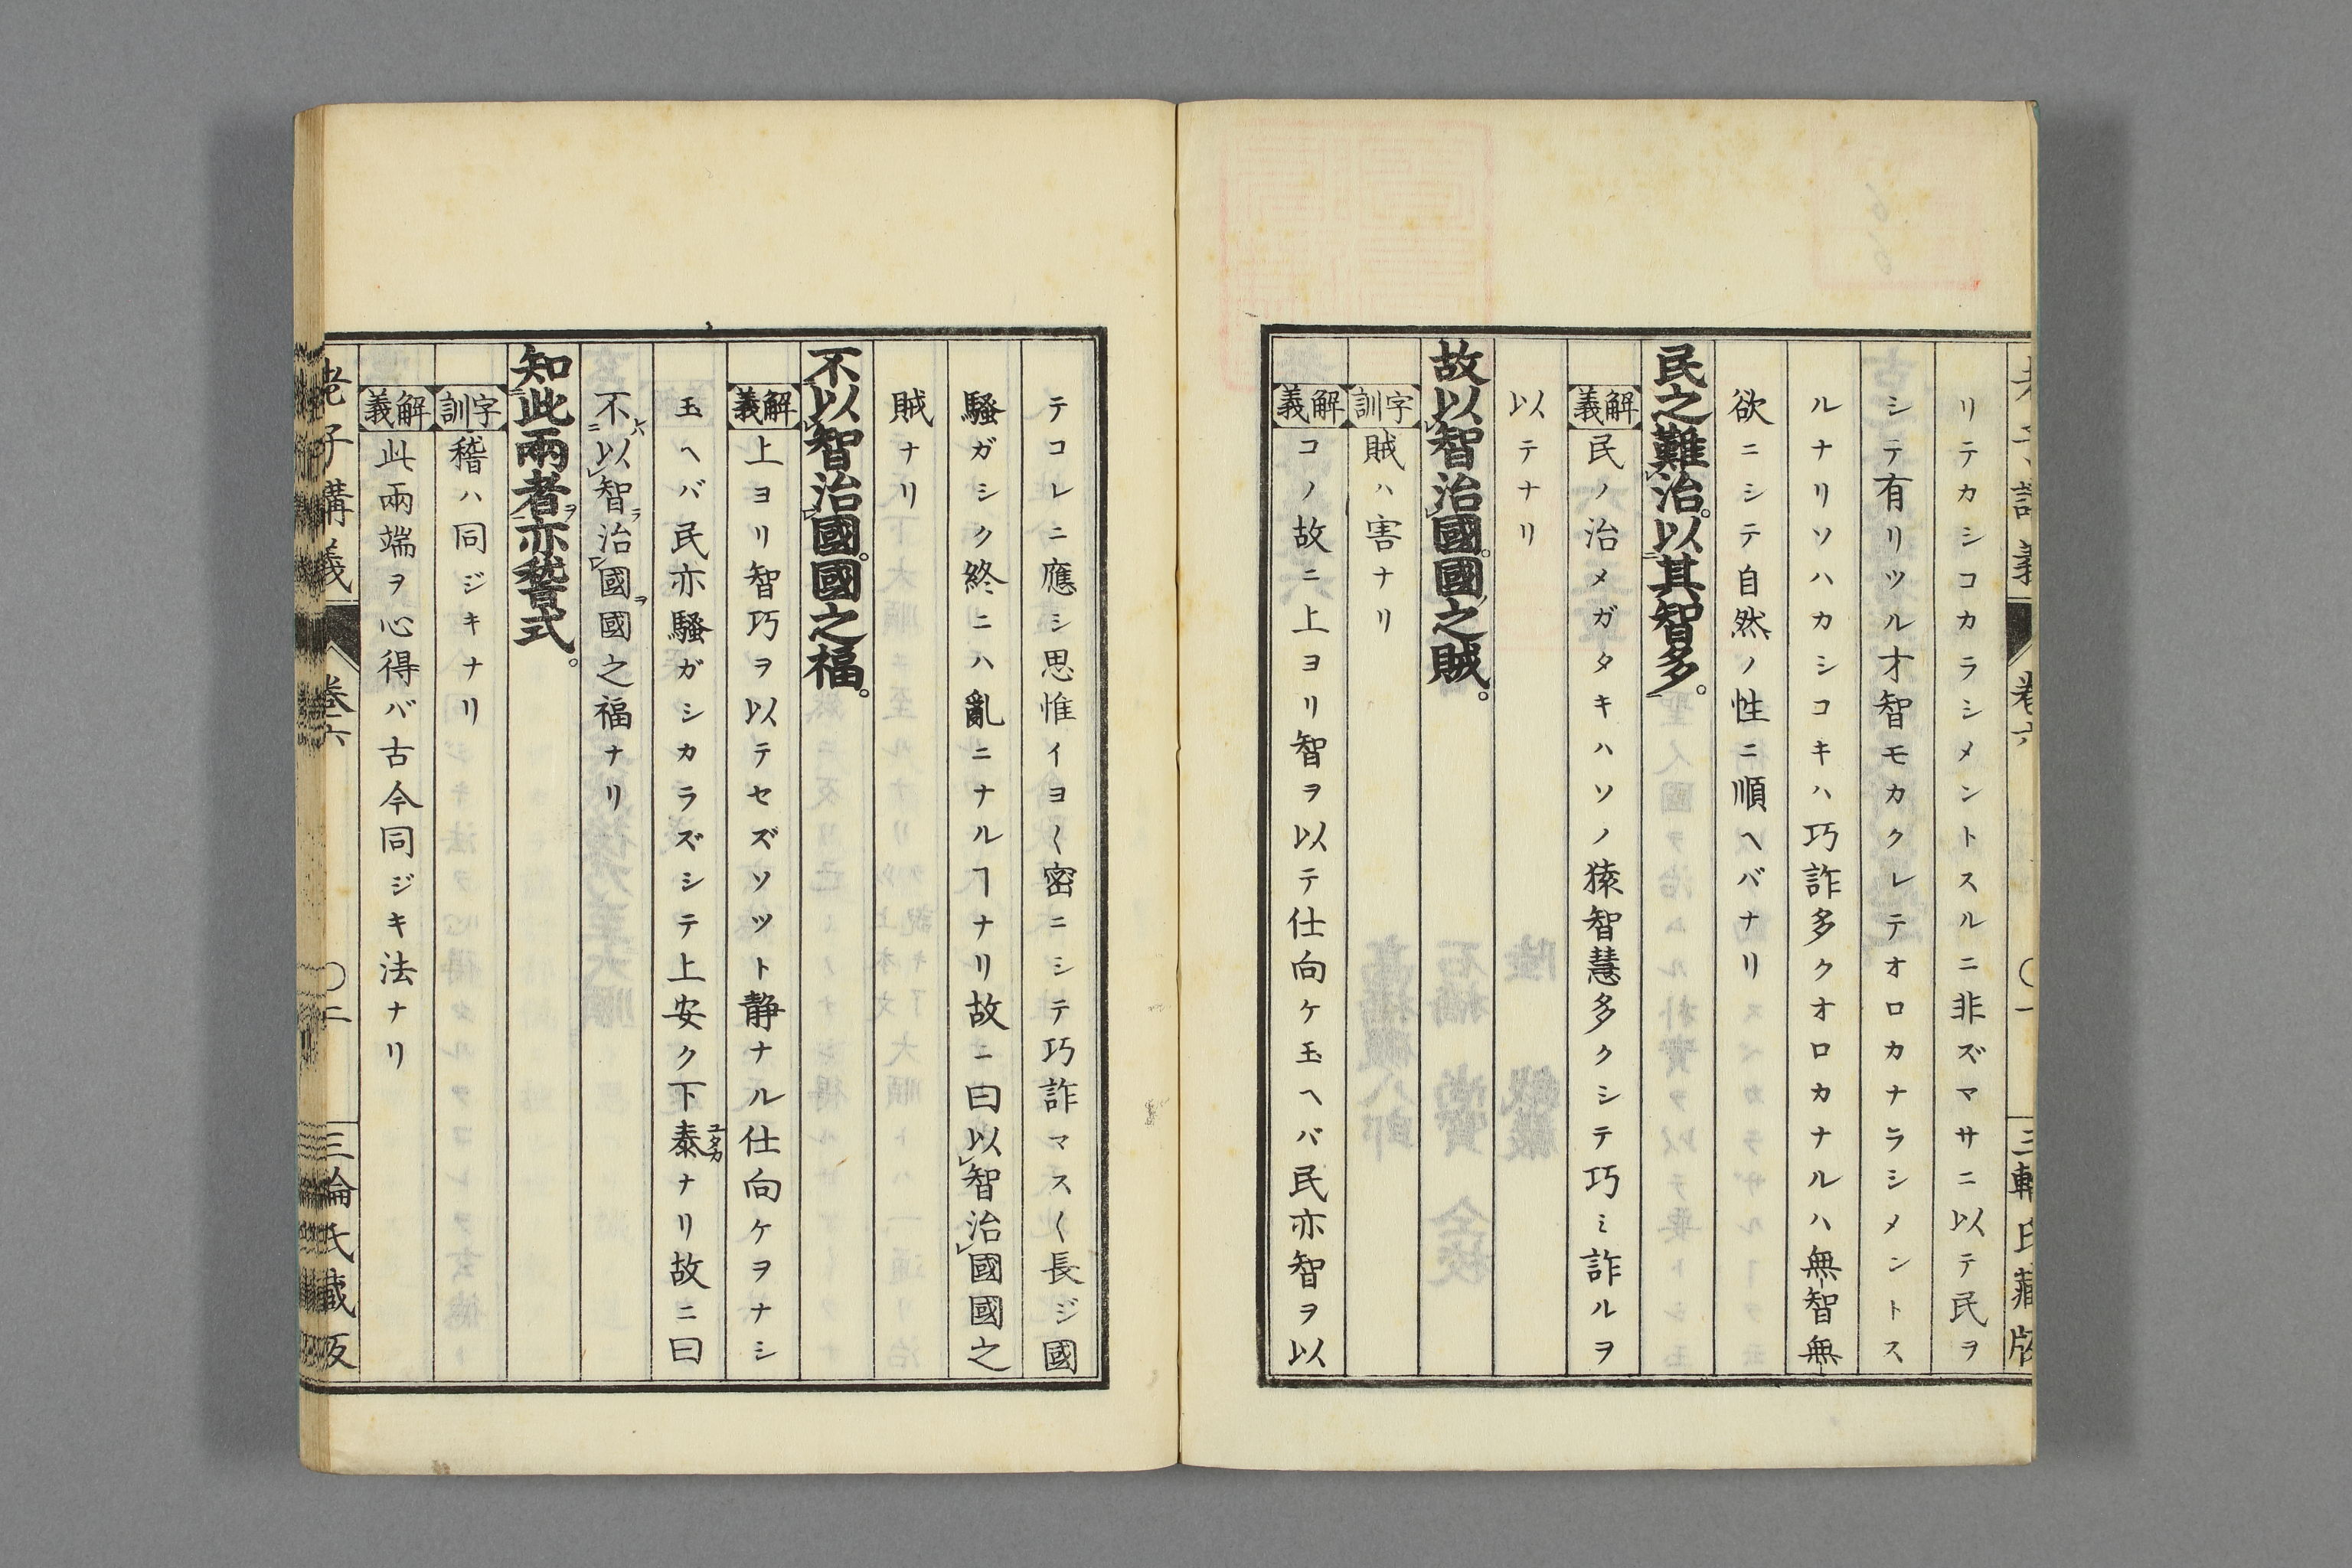 リテカシコカラシメントスルニ非ズマサニ以テ民ヲ
シテ有リツル才智モカクレテオロカナラシメントス
ルナリソハカシコキハ巧詐多クオロカナルハ無智無
欲ニシテ自然ノ性ニ順ヘバナリ
民之難治。以其智多。
解義 民ノ治メガタキハソノ猿智慧多クシテ巧ミ詐ルヲ
以テナリ
故以智治國。國之賊。
字訓 賊ハ害ナリ
解義 コノ故ニ上ヨリ智ヲ以テ仕向ケ玉ヘバ民亦智ヲ以
テコレニ應シ思惟イヨ〱密ニシテ巧詐マス〱長ジ國
騷ガシク終ニハ亂ニナルヿナリ故ニ曰以智治國國之
賊ナリ
不以智治國。國之福。
解義 上ヨリ智巧ヲ以テセズソツト静ナル仕向ケヲナシ
玉ヘバ民亦騷ガシカラズシテ上安ク下泰ナリ故ニ曰
不以智治國國之福ナリ
知此兩者亦稽式。
字訓 稽ハ同ジキナリ
解義 此兩端ヲ心得バ古今同ジキ法ナリ
老子講義 卷六 〇二 三輪氏藏版